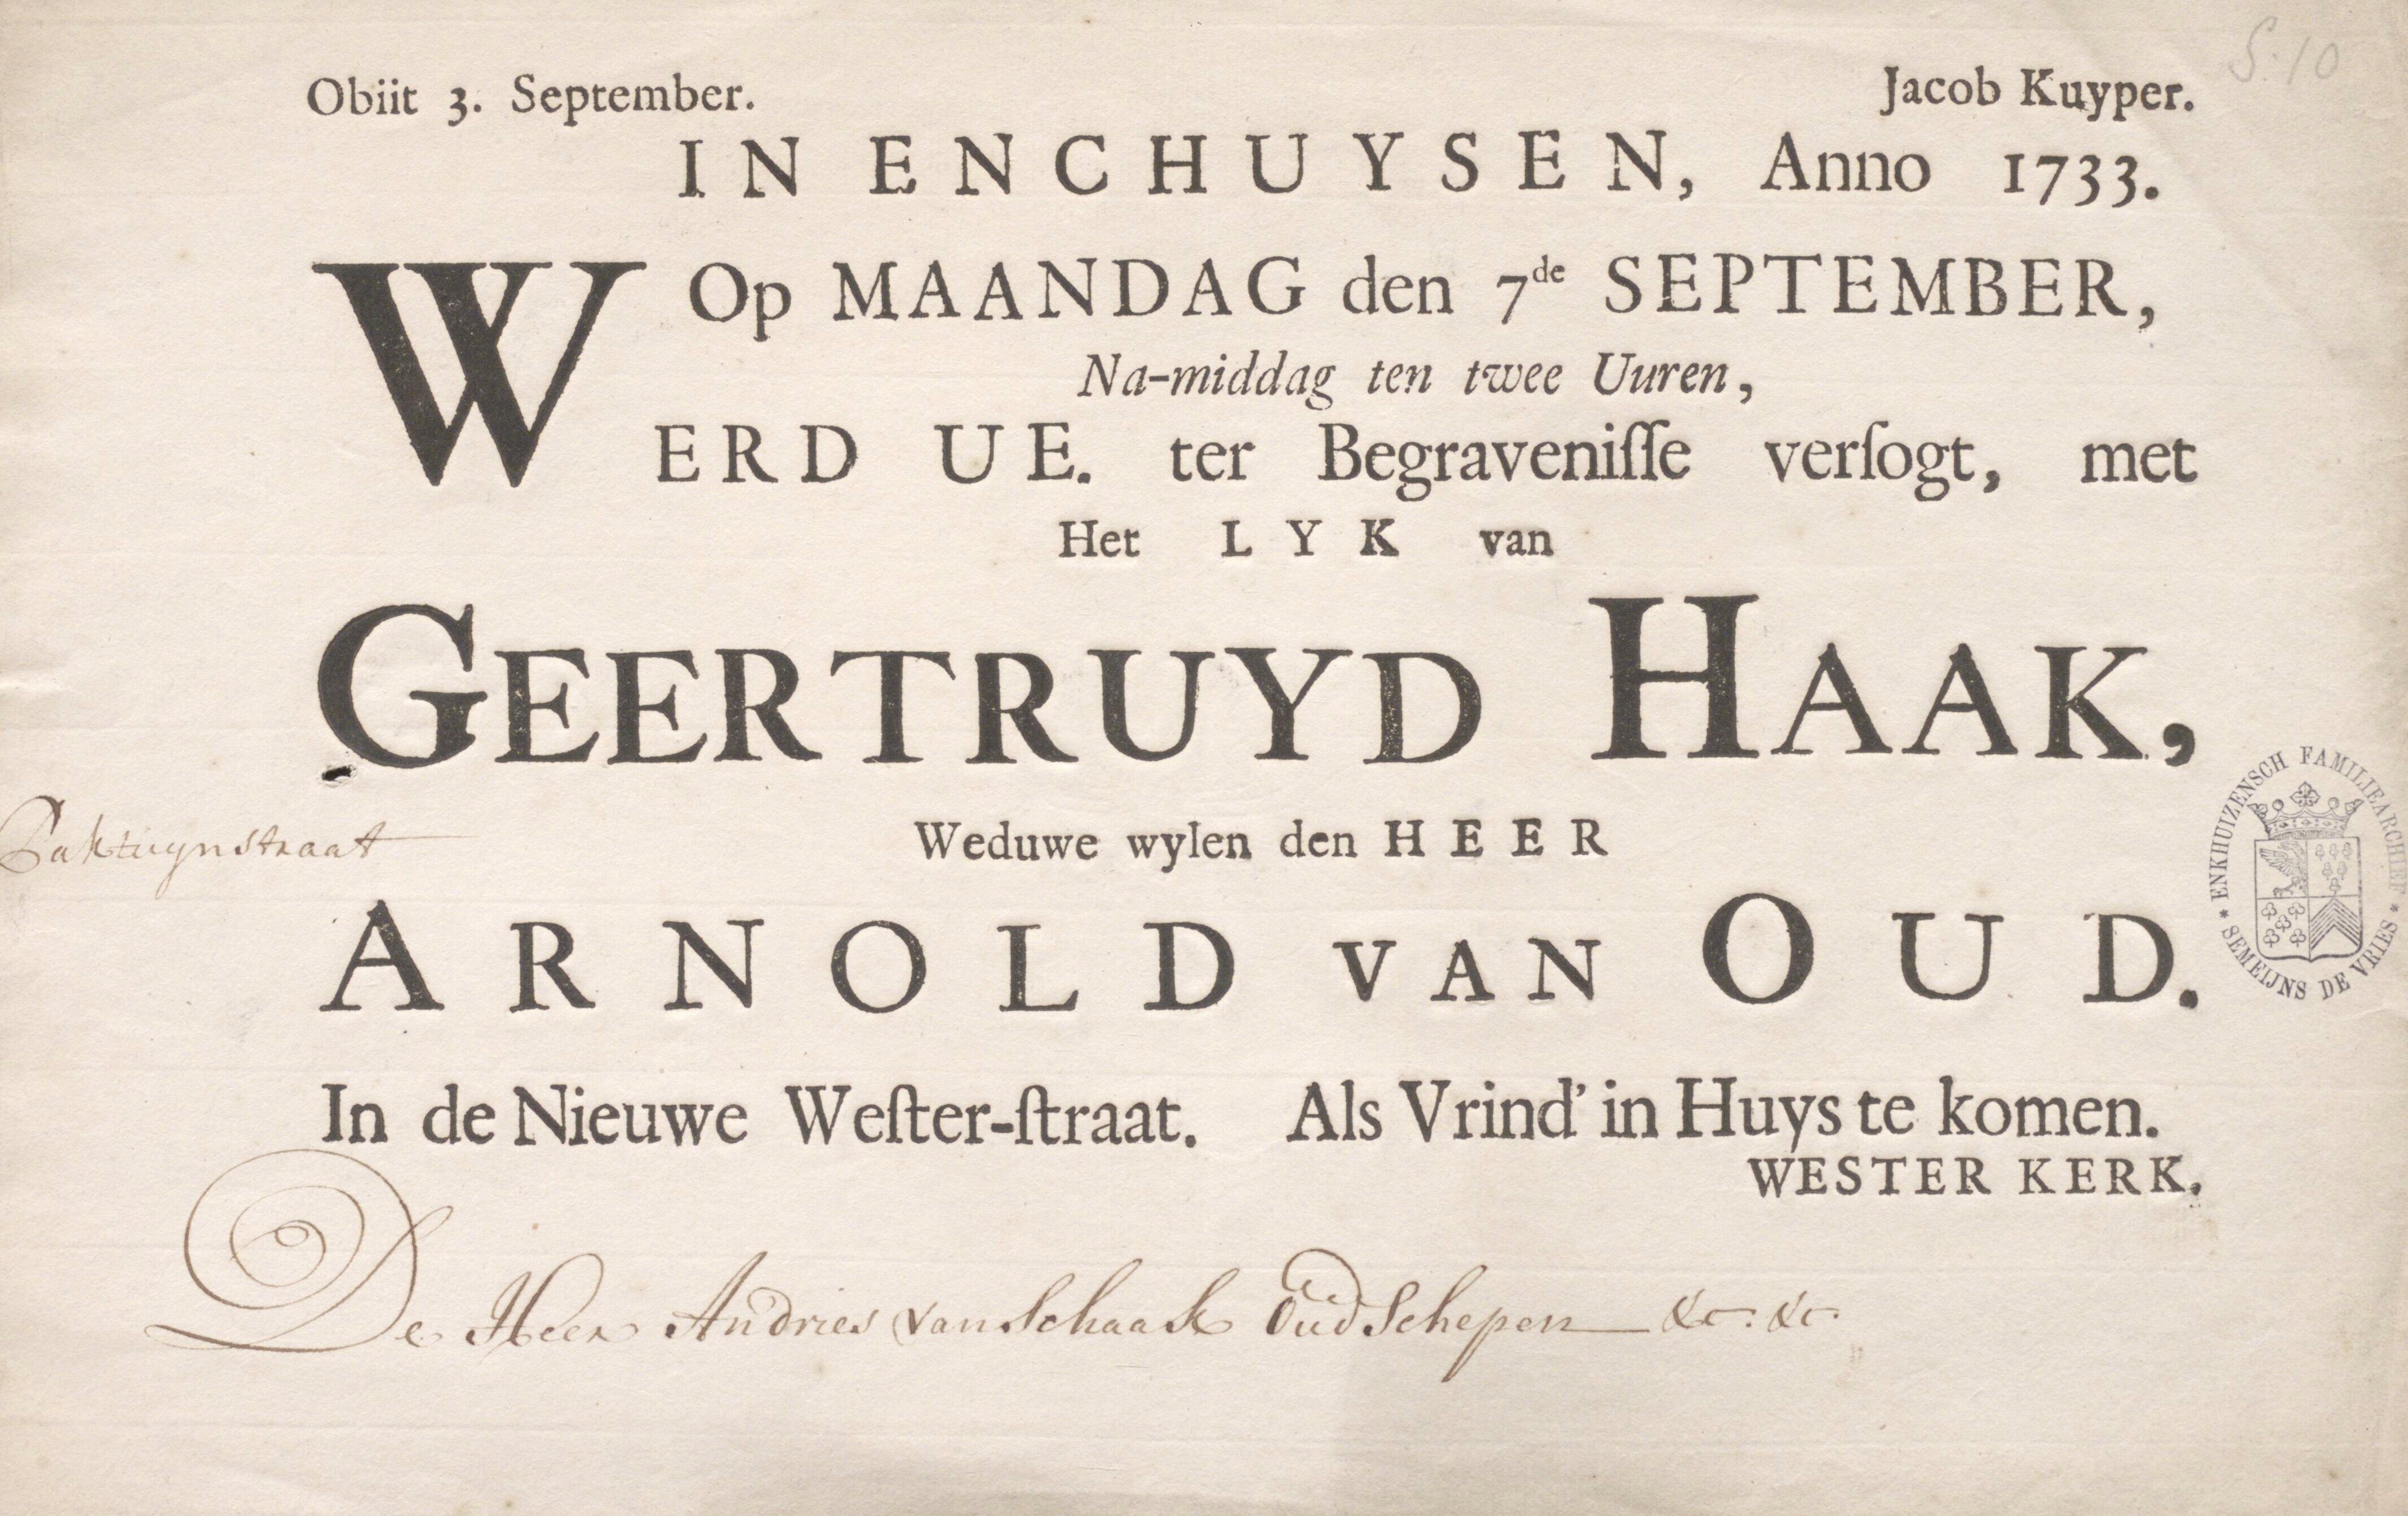 S. 10
Obiit 3. September.
Jacob Kuyper.
IN ENCHUYSEN, Anno 1733.
Op MAANDAG den 7de SEPTEMBER,
Na-middag ten twee Uuren,
WERD UE. ter Begraveniſſe verſogt, met
Het LYK van
GEERTRUYD HAAK,
Weduwe wylen den HEER
ARNOLD VAN OUD.
In de Nieuwe Weſter-ſtraat. Als Vrind' in Huys te komen.
WESTER KERK.
Paktuynstraat
De Heer Andries van Schaak Oud Schepen &c: &c:
* ENKHUIZENSCH FAMILIEARCHIEF * SEMEIJNS DE VRIES